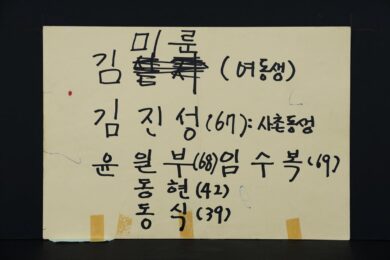 미룬
김 (여동생)
김 진성(67): 사촌동생
윤 원부(68) 임수복(69)
동현(42)
동식(39)